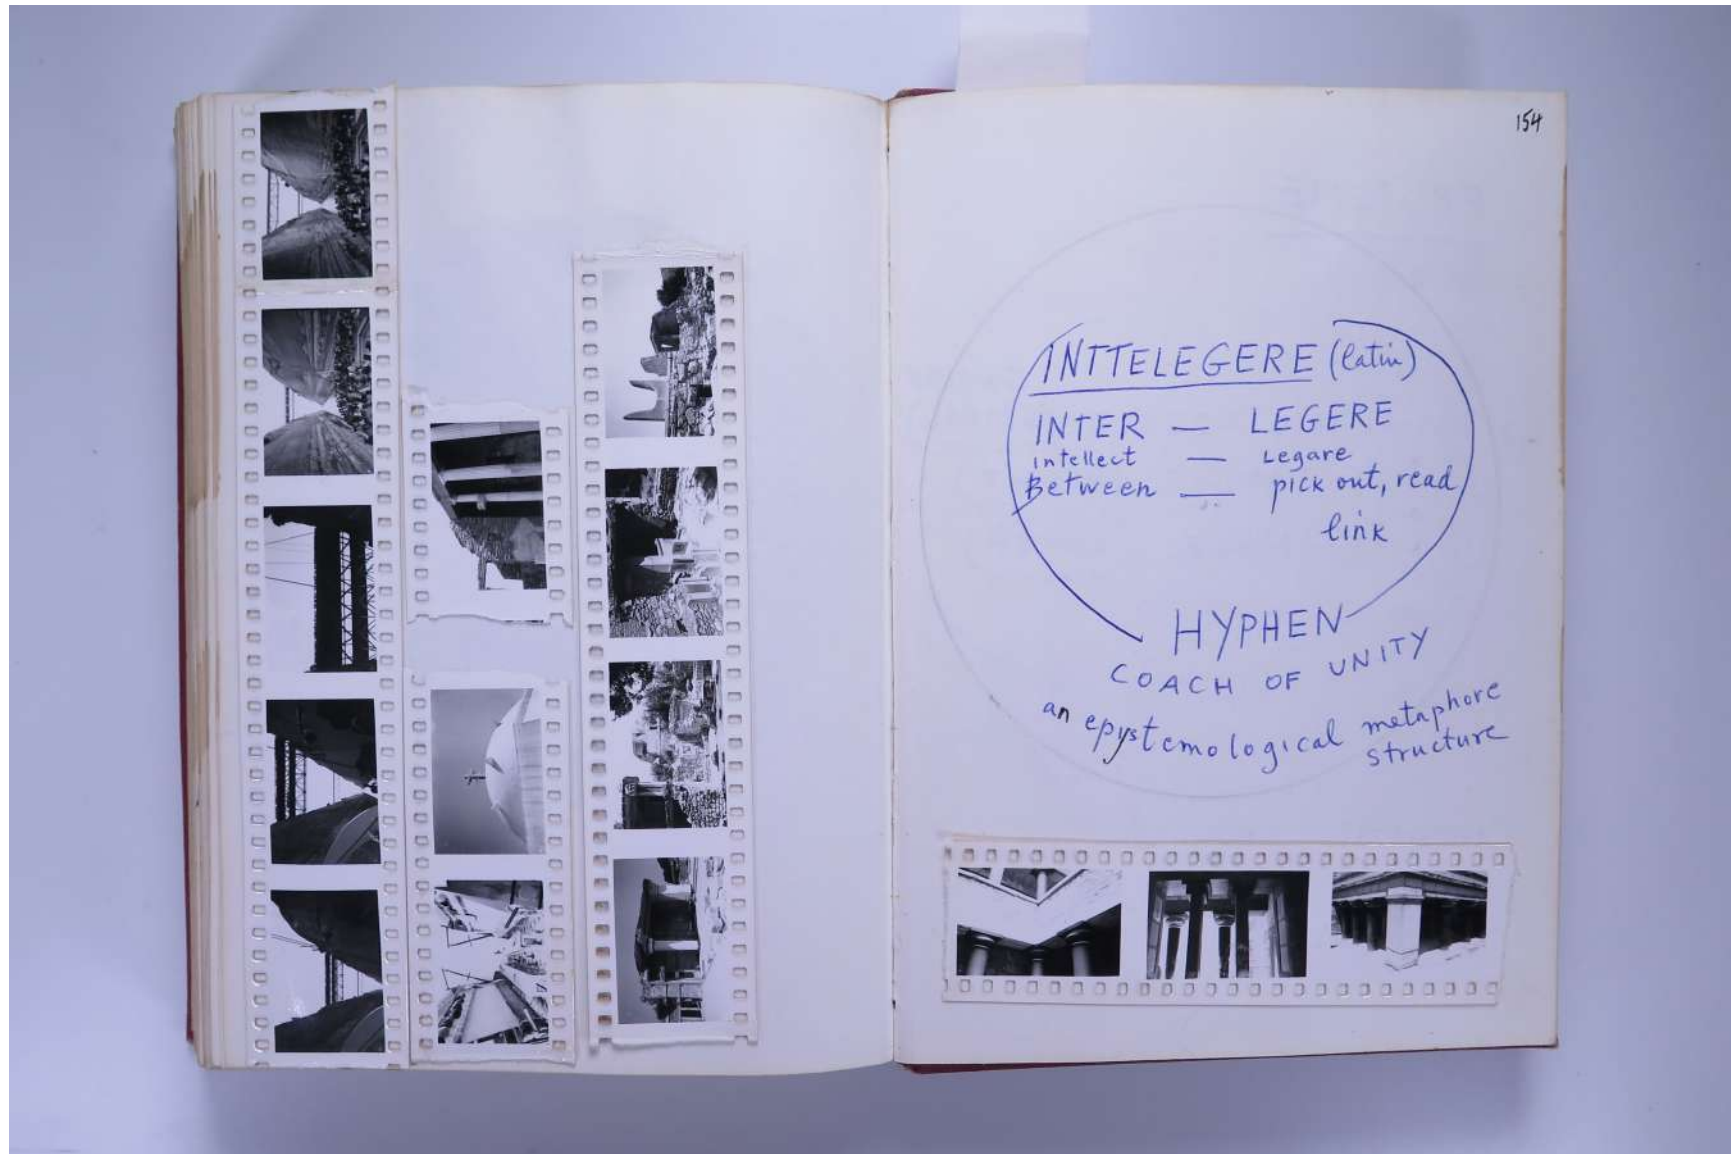 154
INTTELEGERE (latin)
INTER — LEGERE
intellect — Legare
Between — pick out, read
link
HYPHEN
COACH OF UNITY
an epystemological metaphore
structure